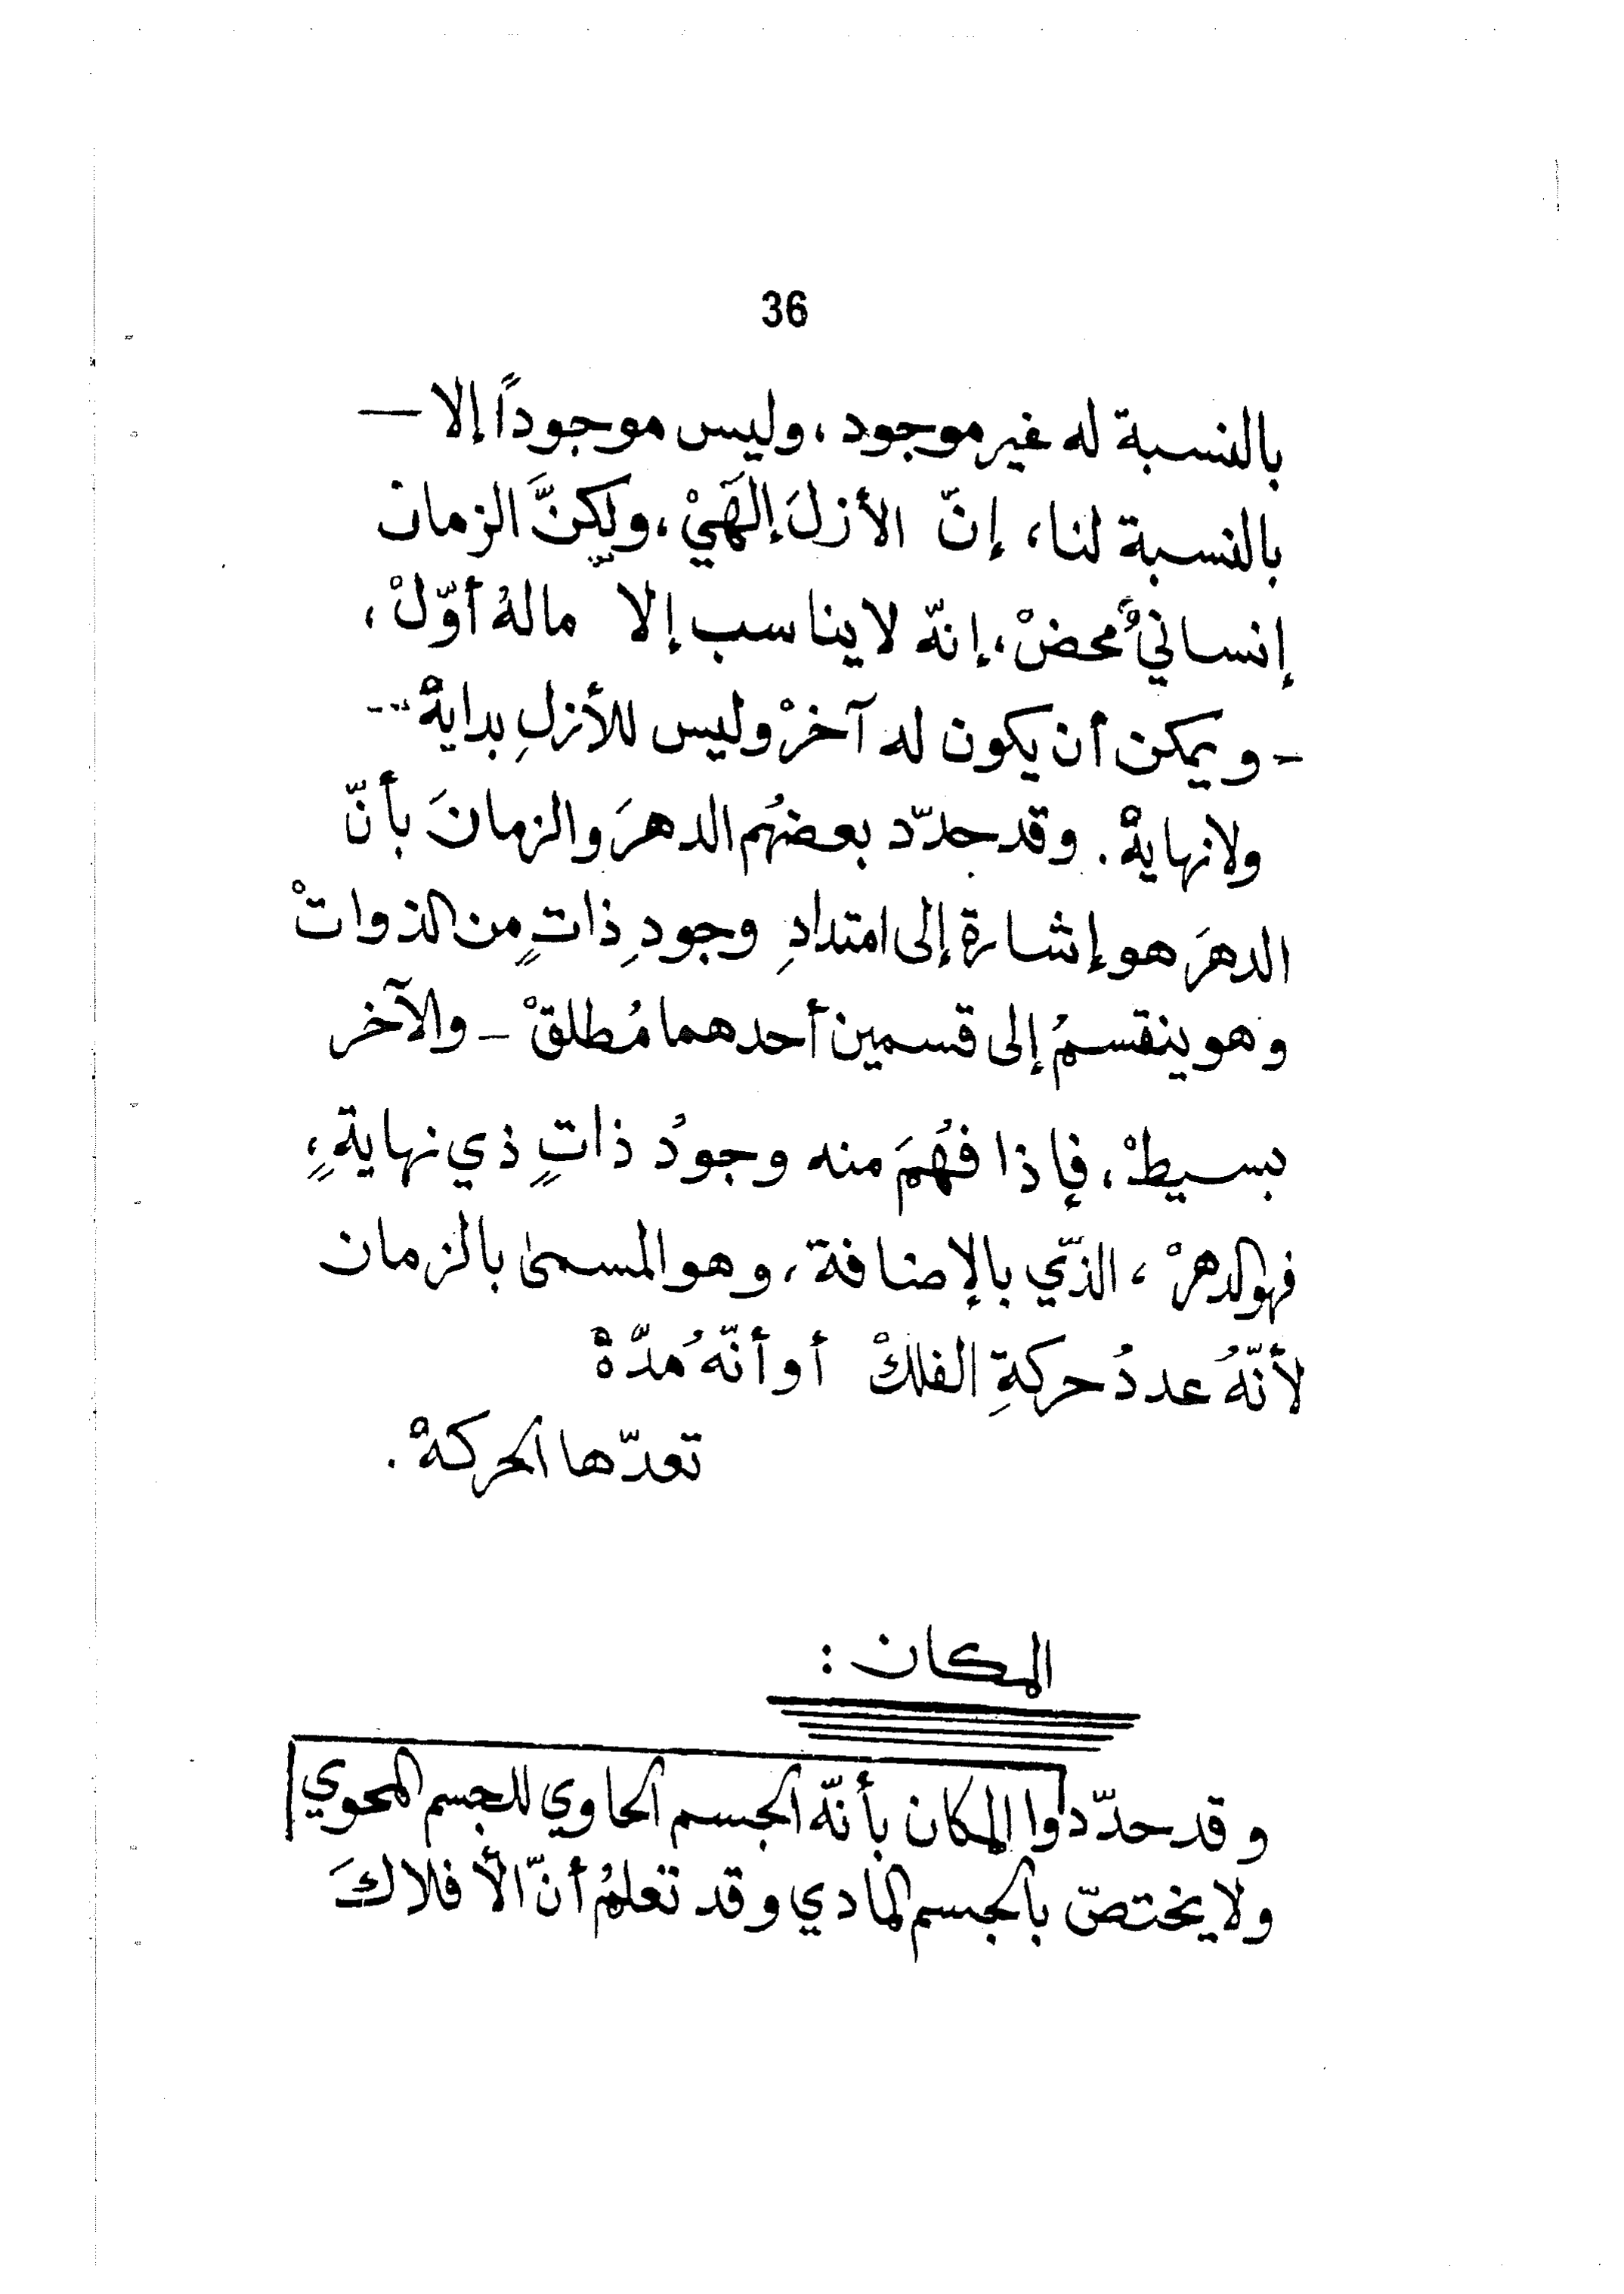 36
بالنسبة له غير موجود، وليس موجوداً إلا —
بالنسبة لنا، إنّ الأزلَ إلَهَيْ، ولكنَّ الزمان
إنسانيْ محضْ، إنهّ لا يناسب إلا مالهُ أوّلْ،
- ويمكن أن يكون له آخرْ وليس للأزلِ بدايةْ --
ولا نهايةْ. وقد حدّد بعضهُم الدهرَ والزمانَ بأنّ
الدهرَ هو إشارة إلى امتدادِ وجودِ ذاتٍ من الذواتْ
وهو ينقسمُ إلى قسمين أحدهما مُطلقْ - والآخر
بسيطْ، فإذا فهُمَ منه وجودُ ذاتٍ ذي نهايةٍ،
فهو الدهرْ، الذّي بالإضافة، وهو المسمى بالزمان
لأنّهُ عددُ حركةِ الفلكْ أو أنّهُ مُدّةْ
تعدّها الحركةْ.
المكان :
وقد حدّدوا المكان بأنهّ الجسم الحاوي للجسم المحوي
ولا يختصّ بالجسم المادي وقد تعلمُ أنّ الأفلاكَ